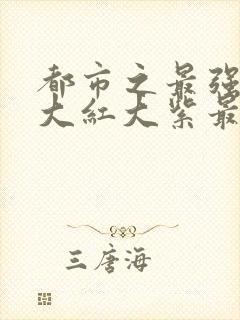 都市之最强
大红大紫最
三唐海